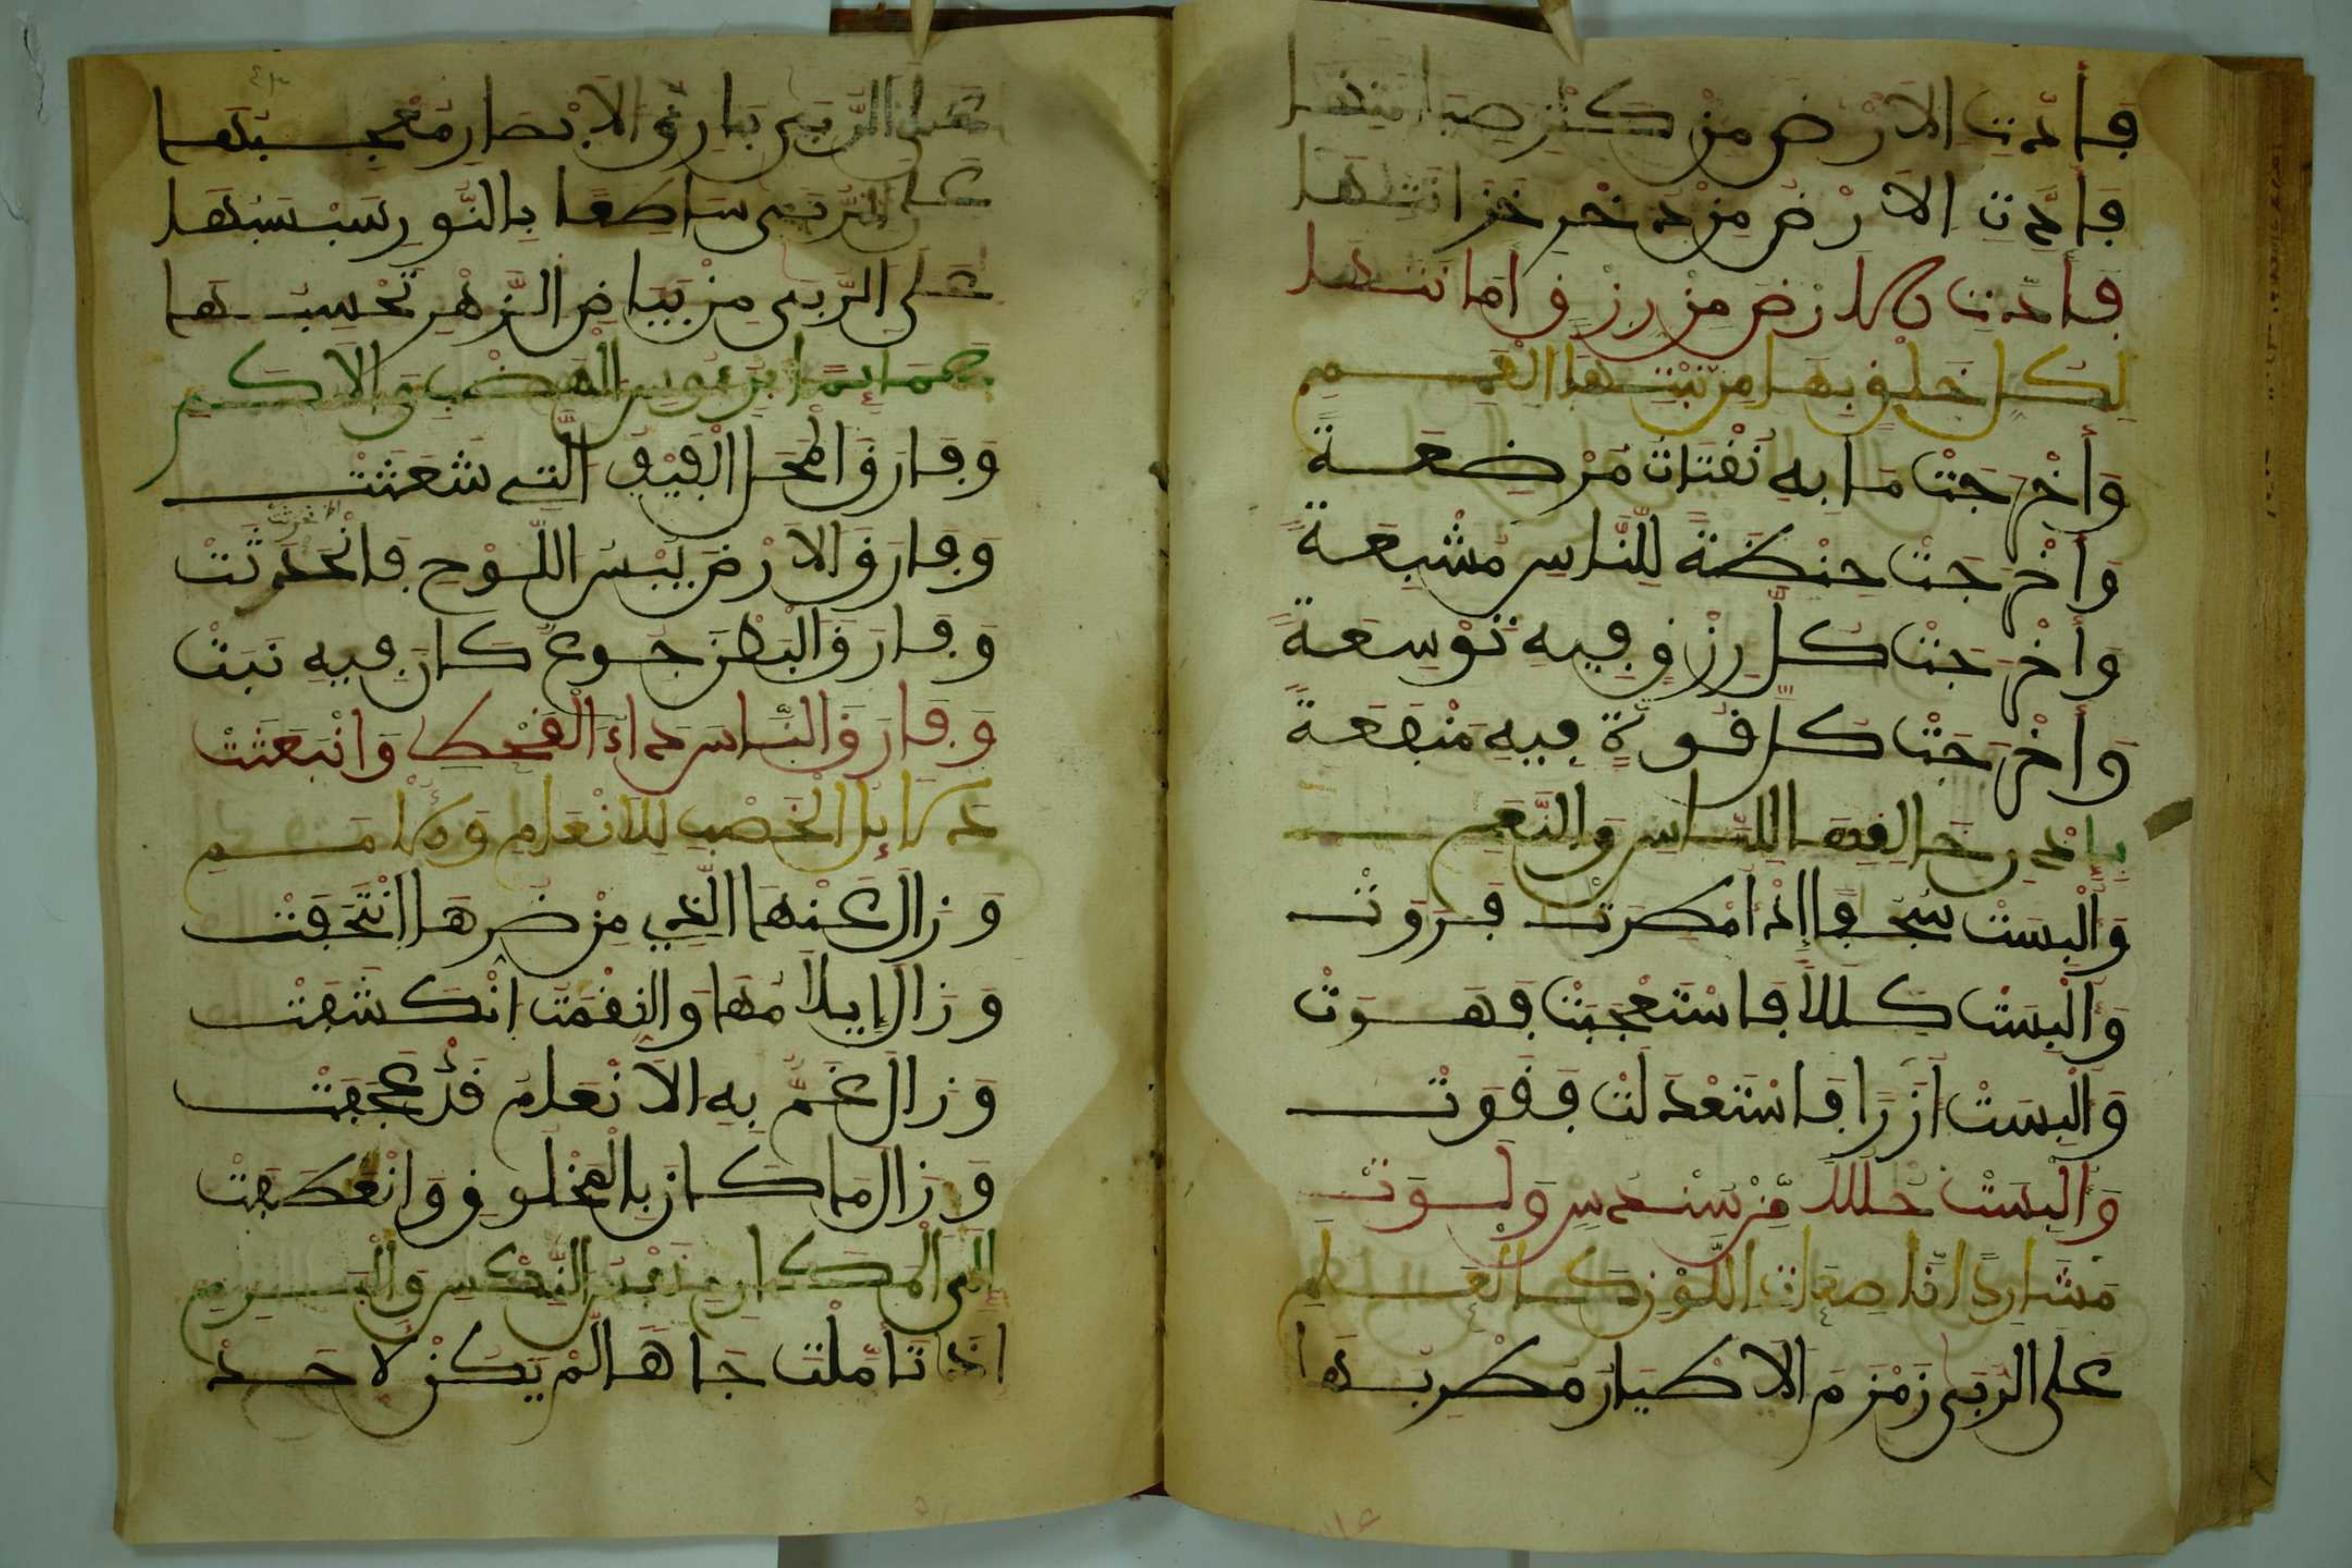 فَأَدَّتِ الاَرْضُ مِنْ كَنْزٍ صِيَانَتَهَا
فَأَدَّتِ الاَرْضُ مِنْ ذُخْرٍ خَزَانَتَهَا
فَأَدَّتِ الاَرْضُ مِنْ رِزْقٍ أَمَانَتَهَا
لِكُلِّ خَلْقٍ بِهَا مِنْ نَبْتِهَا الْعَمِيمِ
وَأَخْرَجَتْ مَا بِهِ نَفْتَاتُ مُرْضِعَةً
وَأَخْرَجَتْ حِنْطَةً لِلنَّاسِ مُشْبِعَةً
وَأَخْرَجَتْ كُلَّ رِزْقٍ فِيهِ تَوْسِعَةً
وَأَخْرَجَتْ كُلَّ قُوَّةٍ فِيهِ مَنْفَعَةً
بِإِذْنِ خَالِقِهَا لِلنَّاسِ وَالنَّعَمِ
وَأُلْبِسَتْ سُجُفًا إِذْ أُمْطِرَتْ فَرَوَتْ
وَأُلْبِسَتْ كِلَلاً فَاسْتَعْجَبَتْ فَهَوَتْ
وَأُلْبِسَتْ أُزُرًا فَاسْتَعْدَلَتْ فَقَوَتْ
وَأُلْبِسَتْ حُلَلاً مِّنْ سُنْدُسٍ وَلَوَتْ
عَلَى الرُّبَى زَمْزَمَ الاَطْيَارُ مُطْرِبَهَا
عَلَى الرُّبَى بَارِقُ الاَبْصَارِ مُعْجِبَهَا
عَلَى الرُّبَى سَاطِعًا بِالنُّورِ سَبْسَبَهَا
عَلَى الرُّبَى مِنْ بَيَاضِ الزَّهْرِ تَحْسِبُهَا
عَمَائِمًا بِرُءُوسِ الْهَضْبِ وَالاَكَمِ
وَفَارَقَ الْمَحْلُ الْفَيْفَ الَّتِي شَعَثَتْ
وَفَارَقَ الاَرْضَ يُبْسُ اللَّوْحِ فَانْحَدَثَتْ
وَفَارَقَ الْبَطْنَ جُوعٌ كَانَ فِيهِ نَبَثْ
وَفَارَقَ النَّاسَ دَاءُ الْقَحْطِ وَانْبَعَثَتْ
وَزَالَ عَنْهَا الَّذِي مِنْ ضَرِّهَا انْتَحَفَتْ
وَزَالَ إِيلَامُهَا وَالنِّقْمَةُ انْكَشَفَتْ
وَزَالَ غَمٌّ بِهِ الاَنْعَامُ قَدْ عَجَفَتْ
وَزَالَ مَا كَانَ بِالْمَخْلُوقِ وَانْعَطَفَتْ
إِلَى الْمَكَارِمِ نَفْسُ النِّكْسِ وَالْبَرِمِ
إِذَا تَأَمَّلْتَ جَاهًا لَّمْ يَكُنْ لاَحَدْ